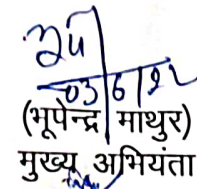 03/6/22
(भूपेन्द्र माथुर)
मुख्य अभियंता